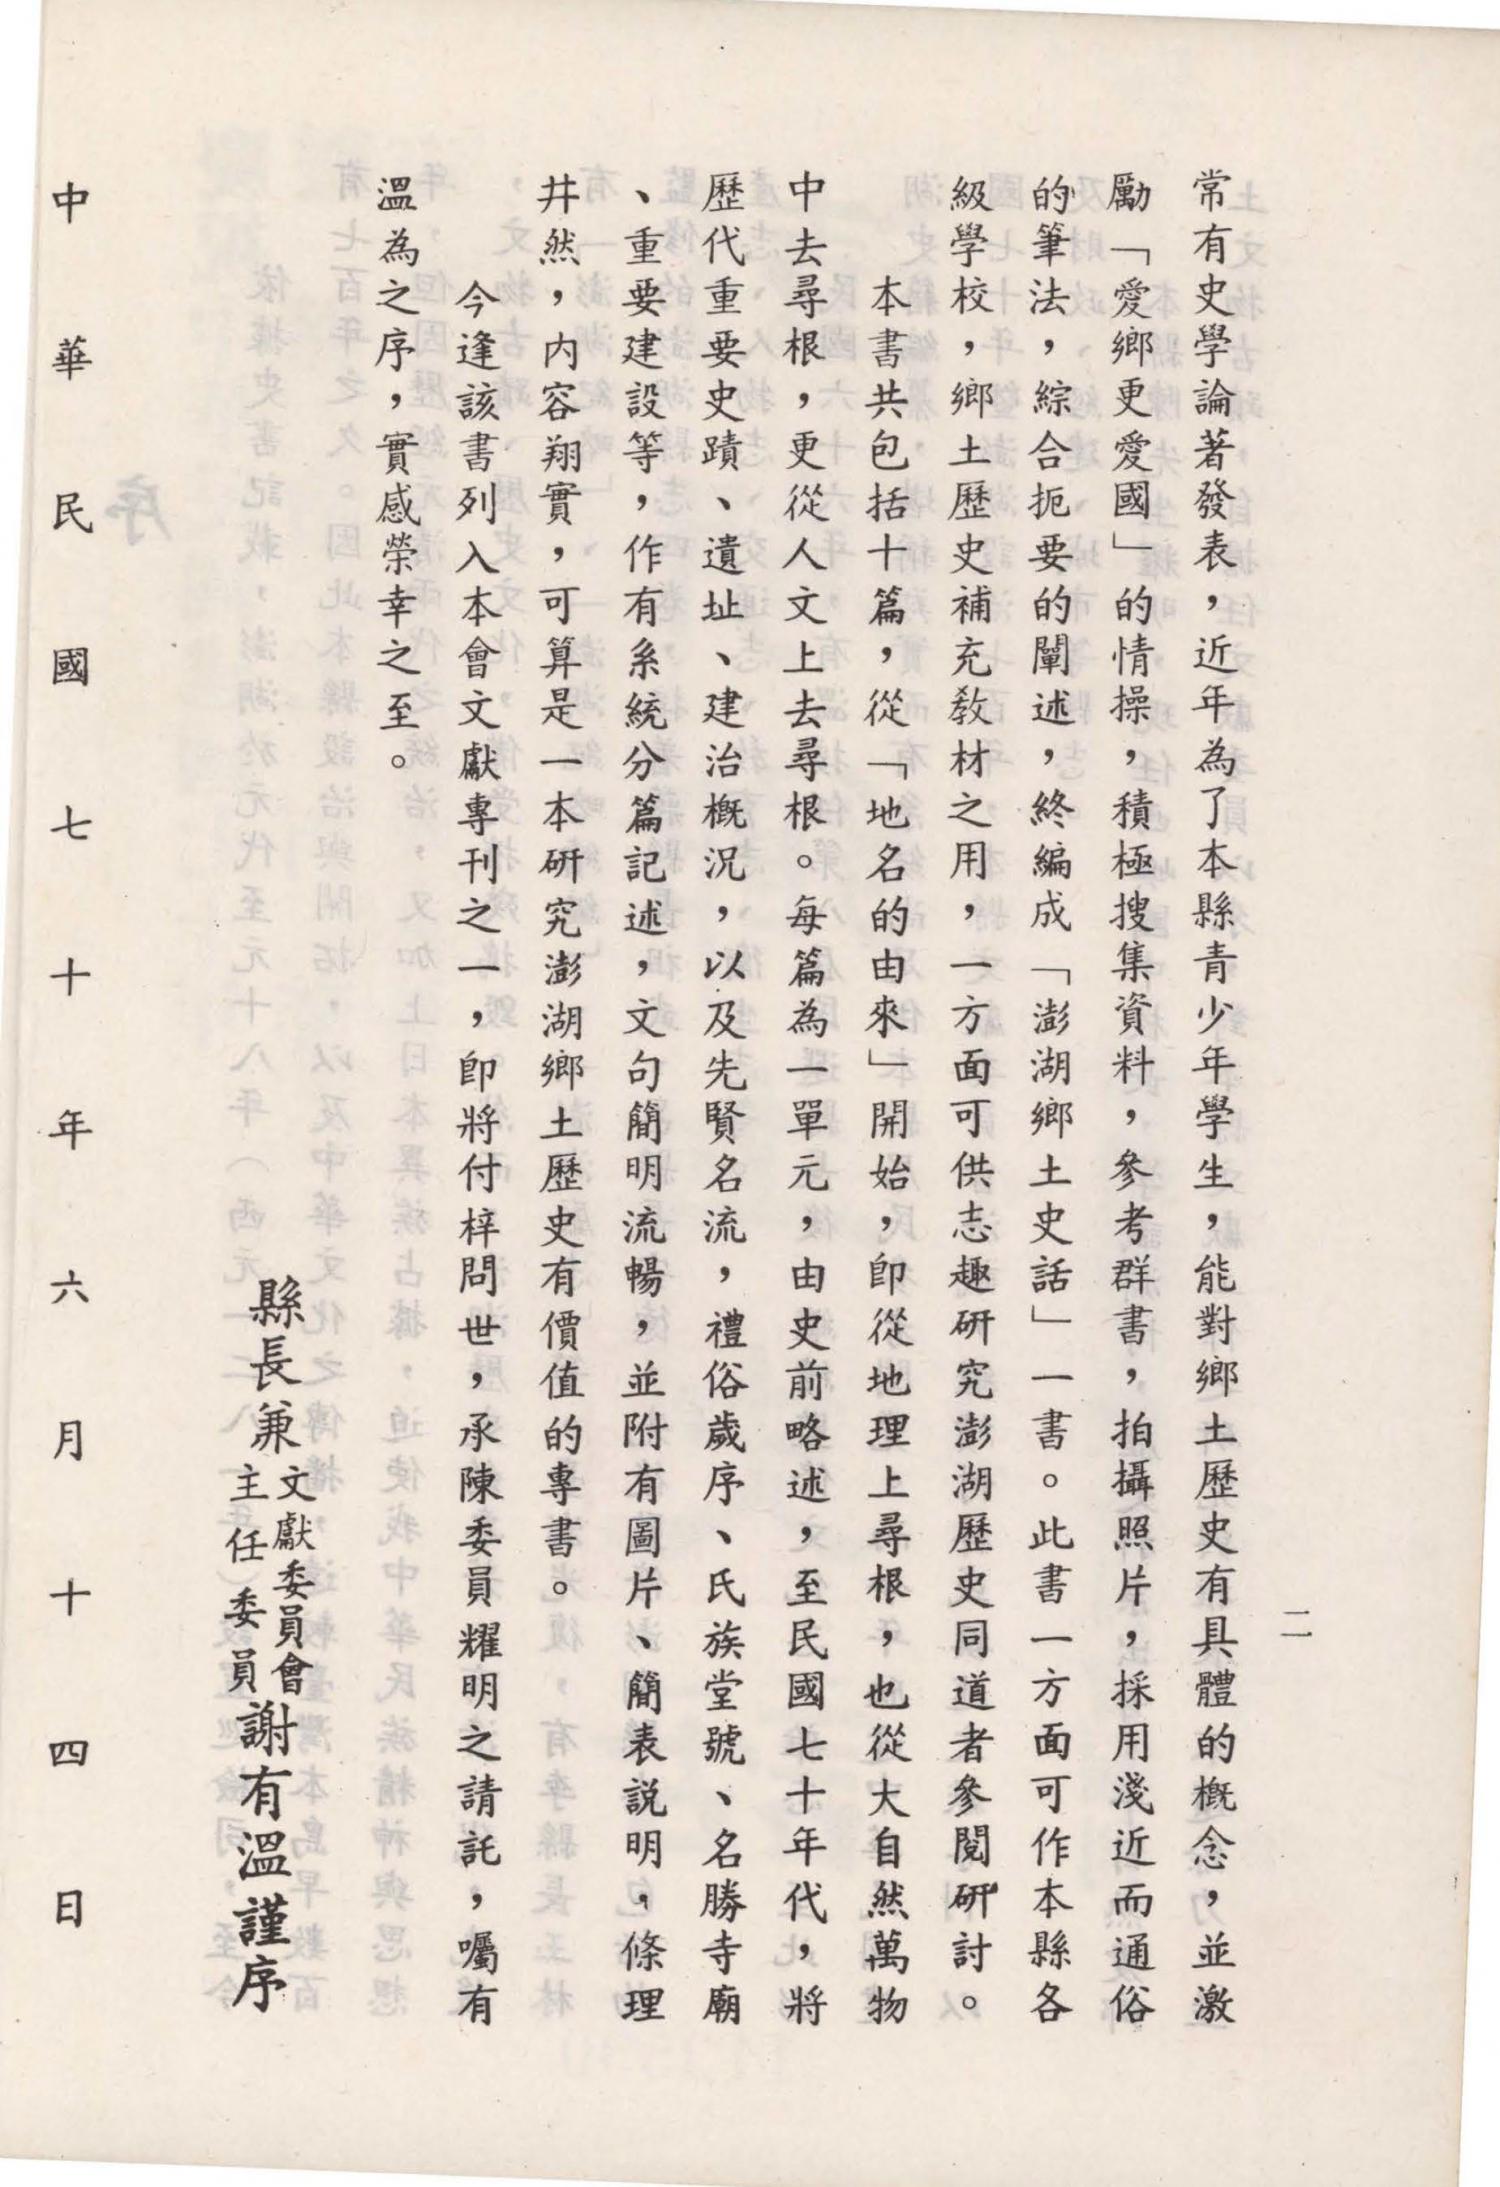 二
常有史學論著發表，近年為了本縣青少年學生，能對鄉土歷史有具體的概念，並激
勵「愛鄉更愛國」的情操，積極搜集資料，參考群書，拍攝照片，採用淺近而通俗
的筆法，綜合扼要的闡述，終編成「澎湖鄉土史話」一書。此書一方面可作本縣各
級學校，鄉土歷史補充教材之用，一方面可供志趣研究澎湖歷史同道者參閱研討。
本書共包括十篇，從「地名的由來」開始，即從地理上尋根，也從大自然萬物
中去尋根，更從人文上去尋根。每篇為一單元，由史前略述，至民國七十年代，將
歷代重要史蹟、遺址、建治概況，以及先賢名流，禮俗歲序、氏族堂號、名勝寺廟
、重要建設等，作有系統分篇記述，文句簡明流暢，並附有圖片、簡表説明，條理
井然，內容翔實，可算是一本研究澎湖鄉土歷史有價值的專書。
今逢該書列入本會文獻專刊之一，即將付梓問世，承陳委員耀明之請託，囑有
溫為之序，實感榮幸之至。
縣長兼文獻委員會主任委員謝有溫謹序
中華民國七十年六月十四日